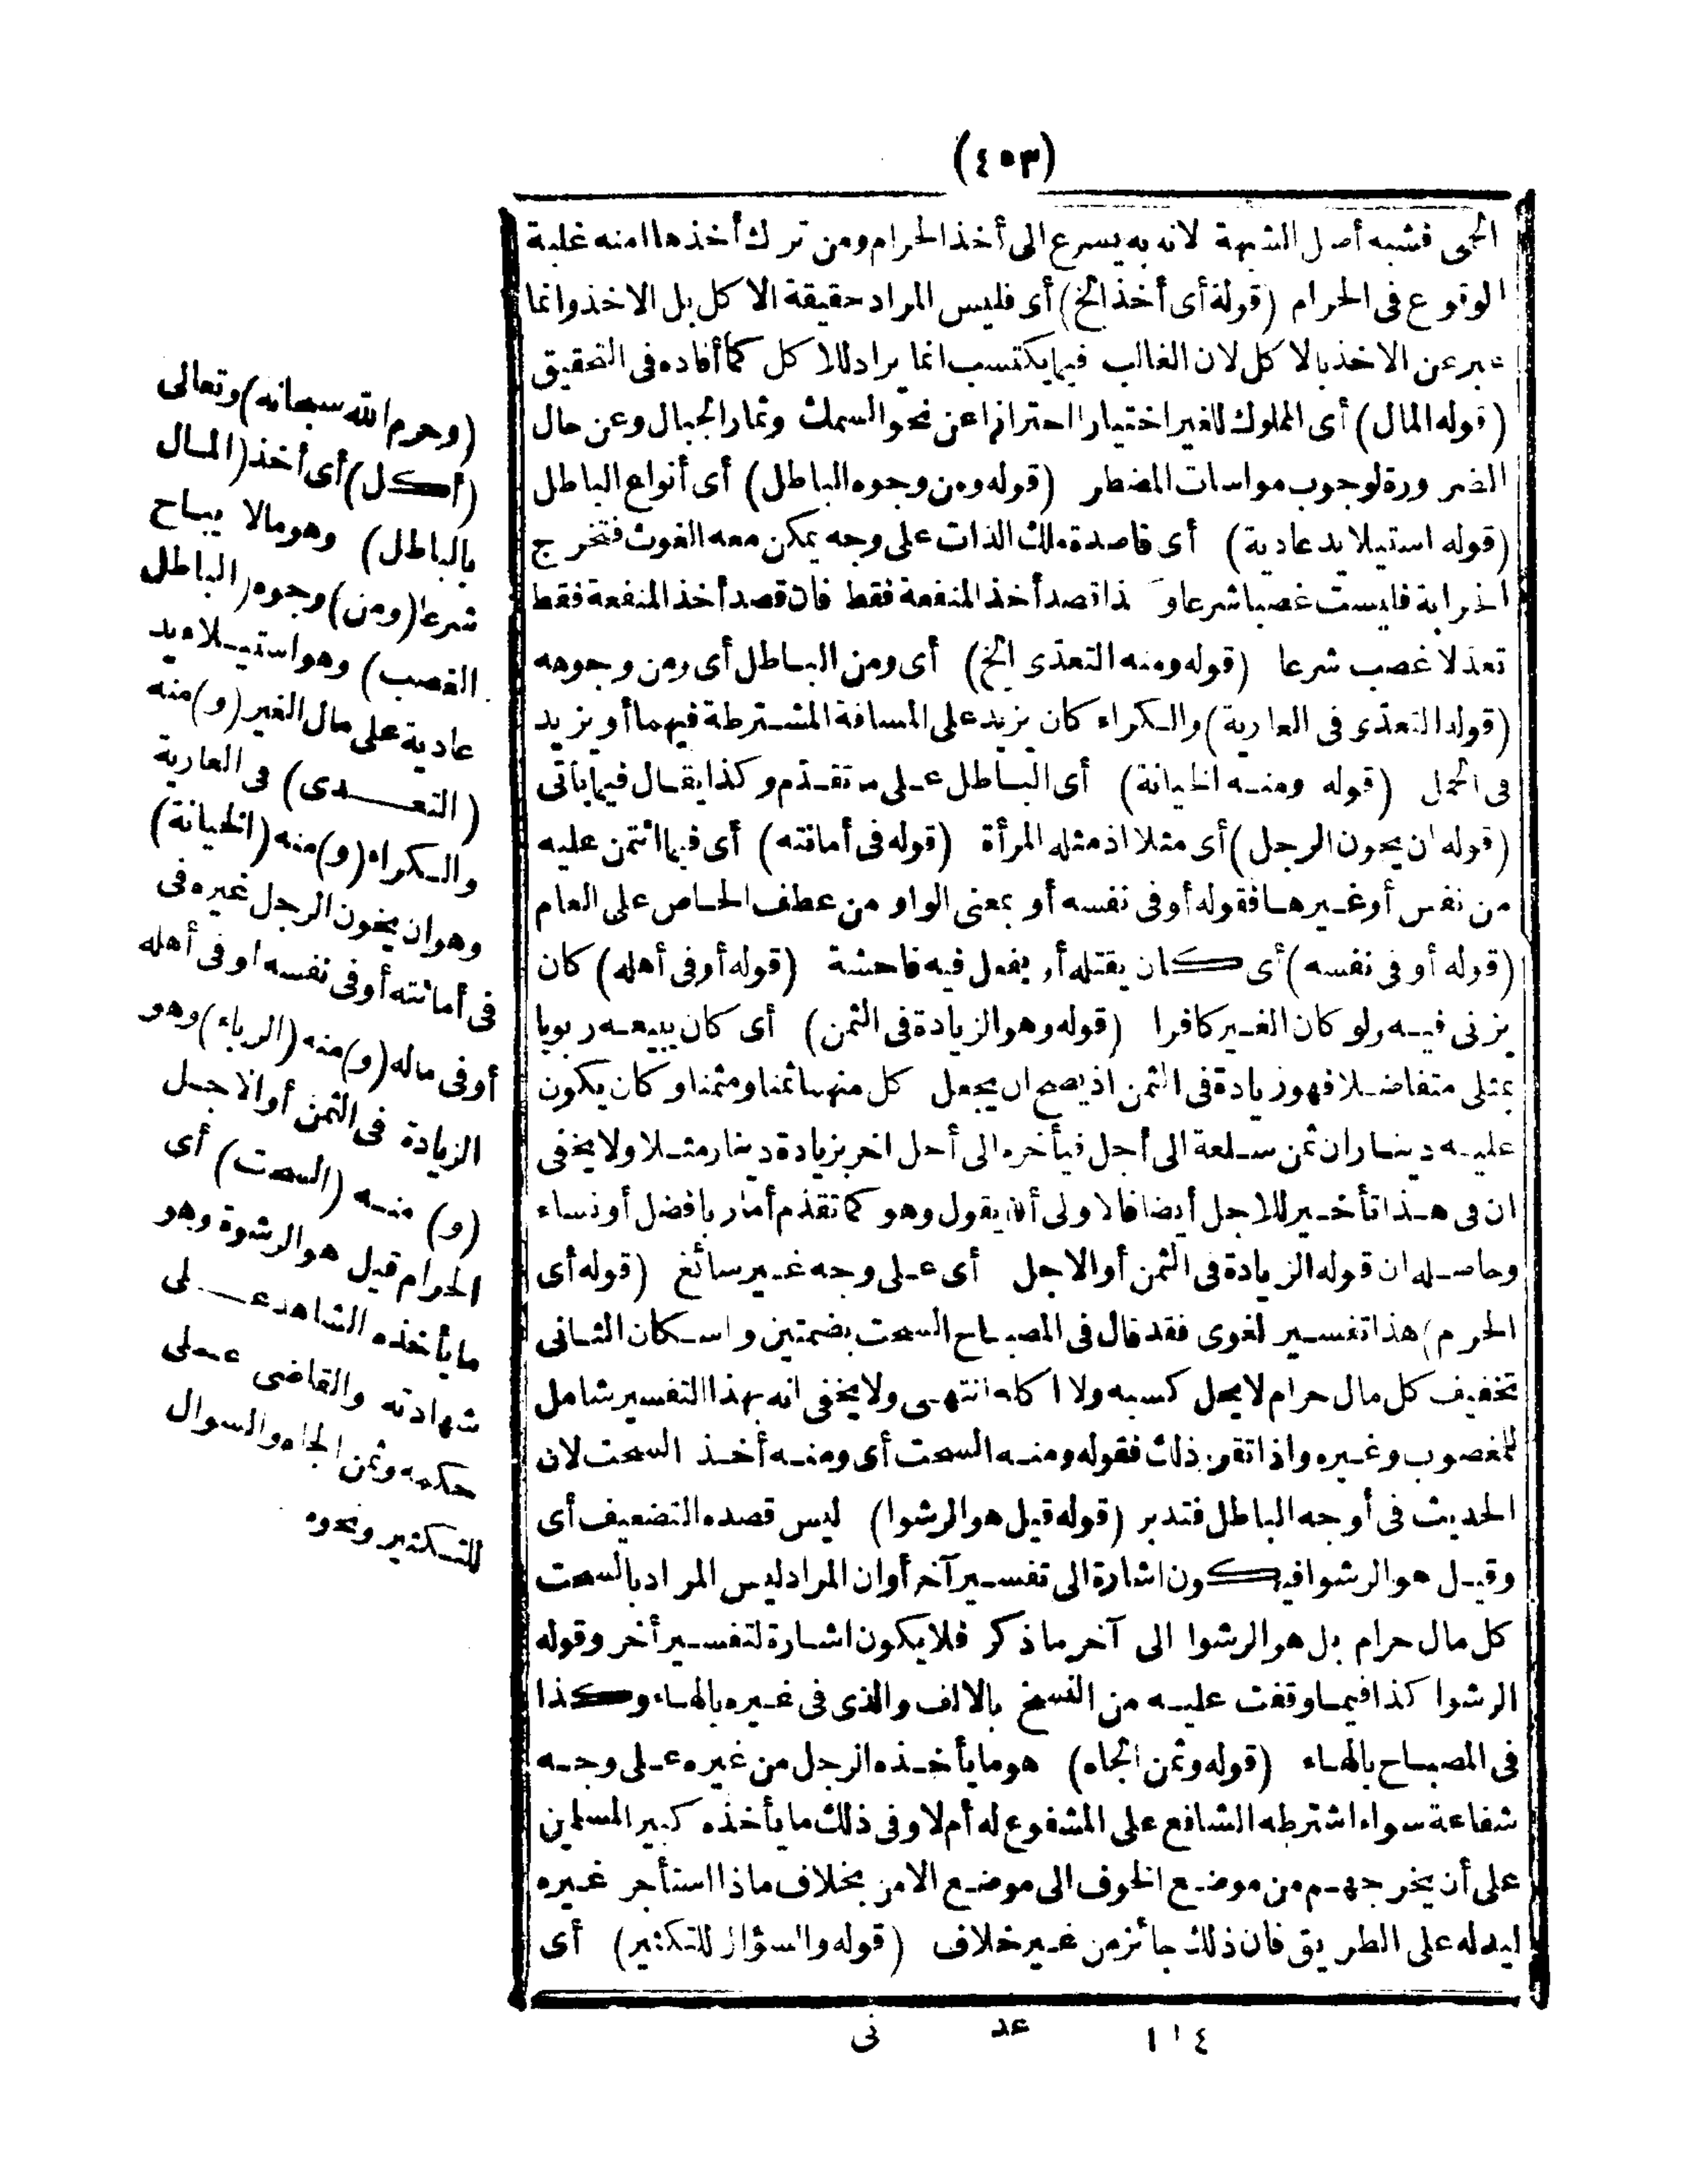 (٤٥٣)
الحمى فشبه أصل الشبهة لانه به يسرع الى أخذ الحرام ومن ترك أخذها امنه غلبة
الوقوع فى الحرام (قولة أى أخذ الخ) أى فليس المراد حقيقة الاكل بل الاخذ وانما
عبر عن الاخذ بالاكل لان الغالب فيما يكتسب انما يراد للاكل كما أفاده فى التحقيق
(قوله المال) أى المملوك للغير اختيارا احترازا عن نحو السمك وثمار الجبال وعن حال
الضرورة لوجوب مواسات المضطر (قوله ومن وجوه الباطل) أى أنواع الباطل
(قوله استيلا يد عادية) أى قاصدة ملك الذات على وجه يمكن معه الغوث فتخرج
الحرابة فليست غصبا شرعا و ذا قصد أخذ المنفعة فقط فان قصد أخذ المنفعة فقط
تعد لا غصب شرعا (قوله ومنه التعدى الخ) أى ومن الباطل أى ومن وجوهه
(قوله التعدى فى العارية) والكراء كان يزيد على المسافة المشترطة فيهما أو يزيد
فى الحمل (قوله ومنه الخيانة) أى الباطل على ما تقدم وكذا يقال فيما يأتى
(قوله ان يخون الرجل) أى مثلا اذ مثله المرأة (قوله فى أمانته) أى فيما ائتمن عليه
من نفس أو غيرها فقوله أو فى نفسه أو بمعنى الواو من عطف الخاص على العام
(قوله أو فى نفسه) أى كان يقتله أو يفعل فيه فاحشة (قوله أو فى أهله) كان
يزنى فيه ولو كان الغير كافرا (قوله وهو الزيادة فى الثمن) أى كان يبيعه ربويا
بمثلى متفاضلا فهو زيادة فى الثمن اذ يصح ان يجعل كل منهما ثمنا ومثمنا وكان يكون
عليه ديناران ثمن سلعة الى أجل فيأخره الى أجل اخر بزيادة دينار مثلا ولا يخفى
ان فى هذا تأخير للاجل أيضا فالاولى أن يقول وهو كما تقدم أما ربا فضل أو نساء
وحاصله ان قوله الزيادة فى الثمن أو الاجل أى على وجه غير سائغ (قوله أى
الحرم) هذا تفسير لغوى فقد قال فى المصباح السحت بضمتين واسكان الثانى
تخفيف كل مال حرام لا يحل كسبه ولا اكله انتهى ولا يخفى انه بهذا التفسير شامل
للمغصوب وغيره واذا تقرر ذلك فقوله ومنه السحت أى ومنه أخذ السحت لان
الحديث فى أوجه الباطل فتدبر (قوله قيل هو الرشوا) ليس قصده التضعيف أى
وقيل هو الرشوا فيكون اشارة الى تفسير آخر أو ان المراد ليس المراد بالسحت
كل مال حرام بل هو الرشوا الى آخر ما ذكر فلا يكون اشارة لتفسير أخر وقوله
الرشوا كذا فيما وقفت عليه من النسخ بالالف والذى فى غيره بالهاء وكذا
فى المصباح بالهاء (قوله وثمن الجاه) هو ما يأخذه الرجل من غيره على وجه
شفاعة سواء اشترطه الشافع على المشفوع له أم لا وفى ذلك ما يأخذه كبير المسلمين
على أن يخرجهم من موضع الخوف الى موضع الامن بخلاف ما اذا استأجر غيره
ليدله على الطريق فان ذلك جائز من غير خلاف (قوله والسؤال للتكثير) أى
(وحرم الله سبحانه) وتعالى
(أكل) أى أخذ (المال
بالباطل) وهو مالا يباح
شرعا (ومن) وجوه (الباطل
الغصب) وهو استيلاء يد
عادية على مال الغير (و) منه
(التعدى) فى العارية
والكراء (و) منه (الخيانة)
وهو ان يخون الرجل غيره فى
فى أمانته أو فى نفسه او فى أهله
أو فى ماله (و) منه (الرباء) وهو
الزيادة فى الثمن أو الاجل
(و) منه (السحت) أى
الحرام قيل هو الرشوة وهو
ما يأخذه الشاهد على
شهادته والقاضى على
حكمه وثمن الجاه والسوال
للتكثير ونحوه
١١٤ عد نى